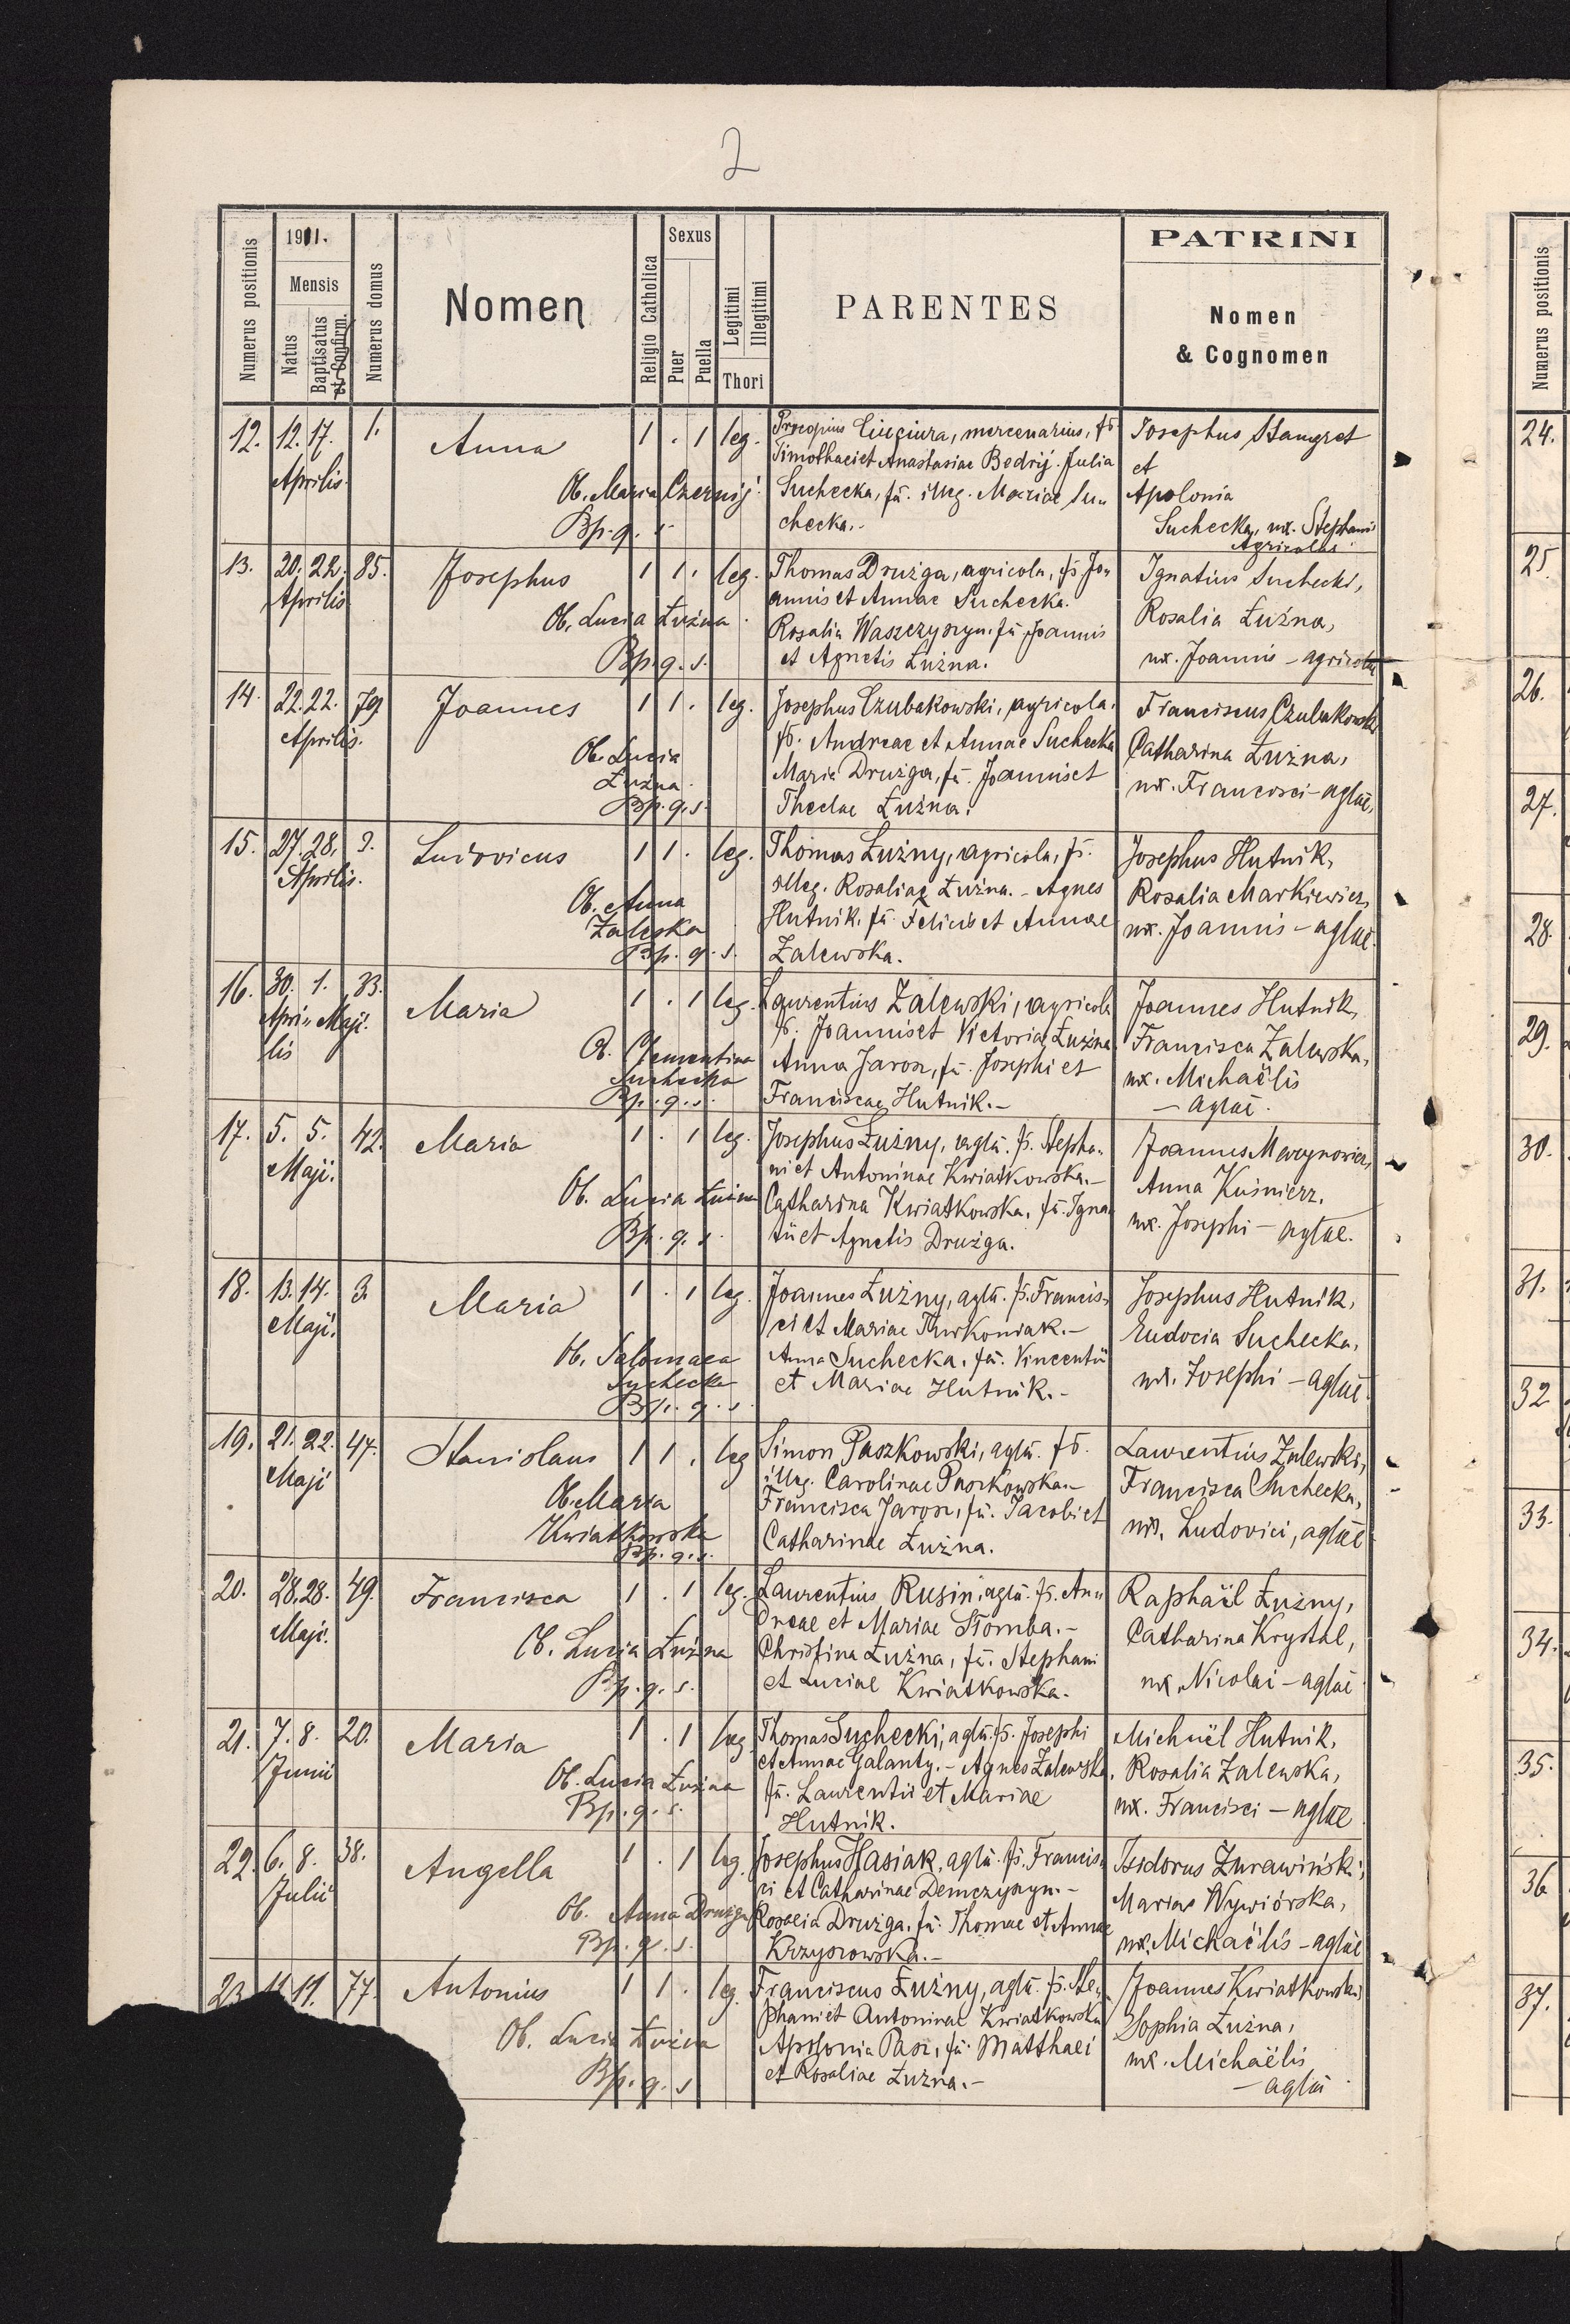 2
Numerus positionis
1911.
Mensis
Natus
Baptisatus
et Confirm.
Numerus domus
Nomen
Religio Catholica
Sexus
Puer
Puella
Legitimi
Illegitimi
Thori
PARENTES
PATRINI
Nomen
& Cognomen
Numerus positionis
12. 12. 17. 1. Anna 1 . 1 leg.
Aprilis
Ob. Maria Czernij.
Bp. q. s.
Procopius Ciuciura, mercenarius, fs
Timothaei et Anastasiae Bedrij. Julia
Suchecka, fa. illeg. Mariae Su-
checka.-
Josephus Stangret
et
Apolonia
Suchecka, ux. Stephani
Agricolae
13. 20. 22. 85. Josephus 1 1 . leg.
Aprilis
Ob. Lucia Łużna.
Bp. q. s.
Thomas Drużga, agricola, fs. Jo-
annis et Annae Suchecka.
Rosalia Waszczyszyn. fa Joannis
et Agnetis Łużna.
Ignatius Suchecki,
Rosalia Łużna,
ux. Joannis - agricolae
14. 22. 22. 79 Joannes 1 1 . leg.
Aprilis.
Ob. Lucia
Łużna.
Bp. q. s.
Josephus Czubakowski, agricola.
fs. Andreae et Annae Suchecka
Maria Drużga, fa. Joannis et
Theclae Łużna.
Franciscus Czubakowski
Catharina Łużna,
ux. Francisci - aglae.
15. 27. 28. 3. Ludovicus 1 1 . leg.
Aprilis.
Ob. Anna
Zaleska
Bp. q. s.
Thomas Łużny, agricola, fs.
illeg. Rosaliae Łużna. - Agnes
Hutnik, fa. Felicis et Annae
Zalewska.
Josephus Hutnik,
Rosalia Markiewicz,
ux. Joannis - aglae.
16. 30. 1. 33. Maria 1 . 1 leg.
Apri- Maji.
lis
Ob. Clementina
Suchecka
Bp. q. s.
Laurentius Zalewski, agricola
fs. Joannis et Victoriae Łużna.
Anna Jarosz, fa. Josephi et
Franciscae Hutnik.-
Joannes Hutnik,
Francisca Zalewska,
ux. Michaëlis
- aglae.
17. 5. 5. 42. Maria 1 . 1 leg.
Maji.
Ob. Lucia Łużna
Bp. q. s.
Josephus Łużny, agla. fs. Stepha-
ni et Antoninae Kwiatkowska.-
Catharina Kwiatkowska, fa. Igna-
tii et Agnetis Drużga.
Joannes Marcynowicz,
Anna Kuśnierz.
ux. Josephi - aglae.
18. 13. 14. 3. Maria 1 . 1 leg.
Maji.
Ob. Salomaea
Suchecka
Bp. q. s.
Joannes Łużny, agla. fs. Francis-
ci et Mariae Thurkoniak.-
Anna Suchecka, fa. Vincentii
et Mariae Hutnik.-
Josephus Hutnik,
Eudocia Suchecka,
ux. Josephi - aglae.
19. 21. 22. 47. Stanislaus 1 1 . leg
Maji
Ob. Maria
Kwiatkowska
Bp. q. s.
Simon Paszkowski, agla. fs.
illeg. Carolinae Paszkowska.-
Francisca Jarosz, fa. Jacobi et
Catharinae Łużna.
Laurentius Zalewski,
Francisca Suchecka,
ux. Ludovici, aglae
20. 28. 28. 49. Francisca 1 . 1 leg.
Maji.
Ob. Lucia Łużna
Bp. q. s.
Laurentius Rusin, agla. fs. An-
dreae et Mariae Stomba.-
Christina Łużna, fa. Stephani
et Luciae Kwiatkowska.
Raphaël Łużny,
Catharina Krystal,
ux. Nicolai - aglae
21. 7. 8. 20. Maria 1 . 1 leg
Junii
Ob. Lucia Łużna
Bp. q. s.
Thomas Suchecki, agla. fs. Josephi
et Annae Galanty. - Agnes Zalewska,
fa. Laurentii et Mariae
Hutnik.
Michaël Hutnik,
Rosalia Zalewska,
ux. Francisci - aglae
22. 6. 8. 38. Angella 1 . 1 leg.
Julii
Ob. Anna Drużga
Bp. q. s.
Josephus Hasiak, agla. fs. Francis-
ci et Catharinae Demczyszyn.-
Rosalia Drużga, fa. Thomae et Annae
Krzyszowska.-
Isidorus Żurawiński,
Maria Wywiórska,
ux. Michaëlis - aglae
23. 11. 11. 77. Antonius 1 1 . leg.
Ob. Lucia Łużna
Bp. q. s
Franciscus Łużny, agla fs. Ste-
phani et Antoninae Kwiatkowska
Apolonia Pasz, fa. Matthaei
et Rosaliae Łużna.-
Joannes Kwiatkowski
Sophia Łużna,
ux. Michaëlis
- aglae
24.
25.
26.
27.
28.
29.
30.
31.
32
33.
34.
35.
36
37.